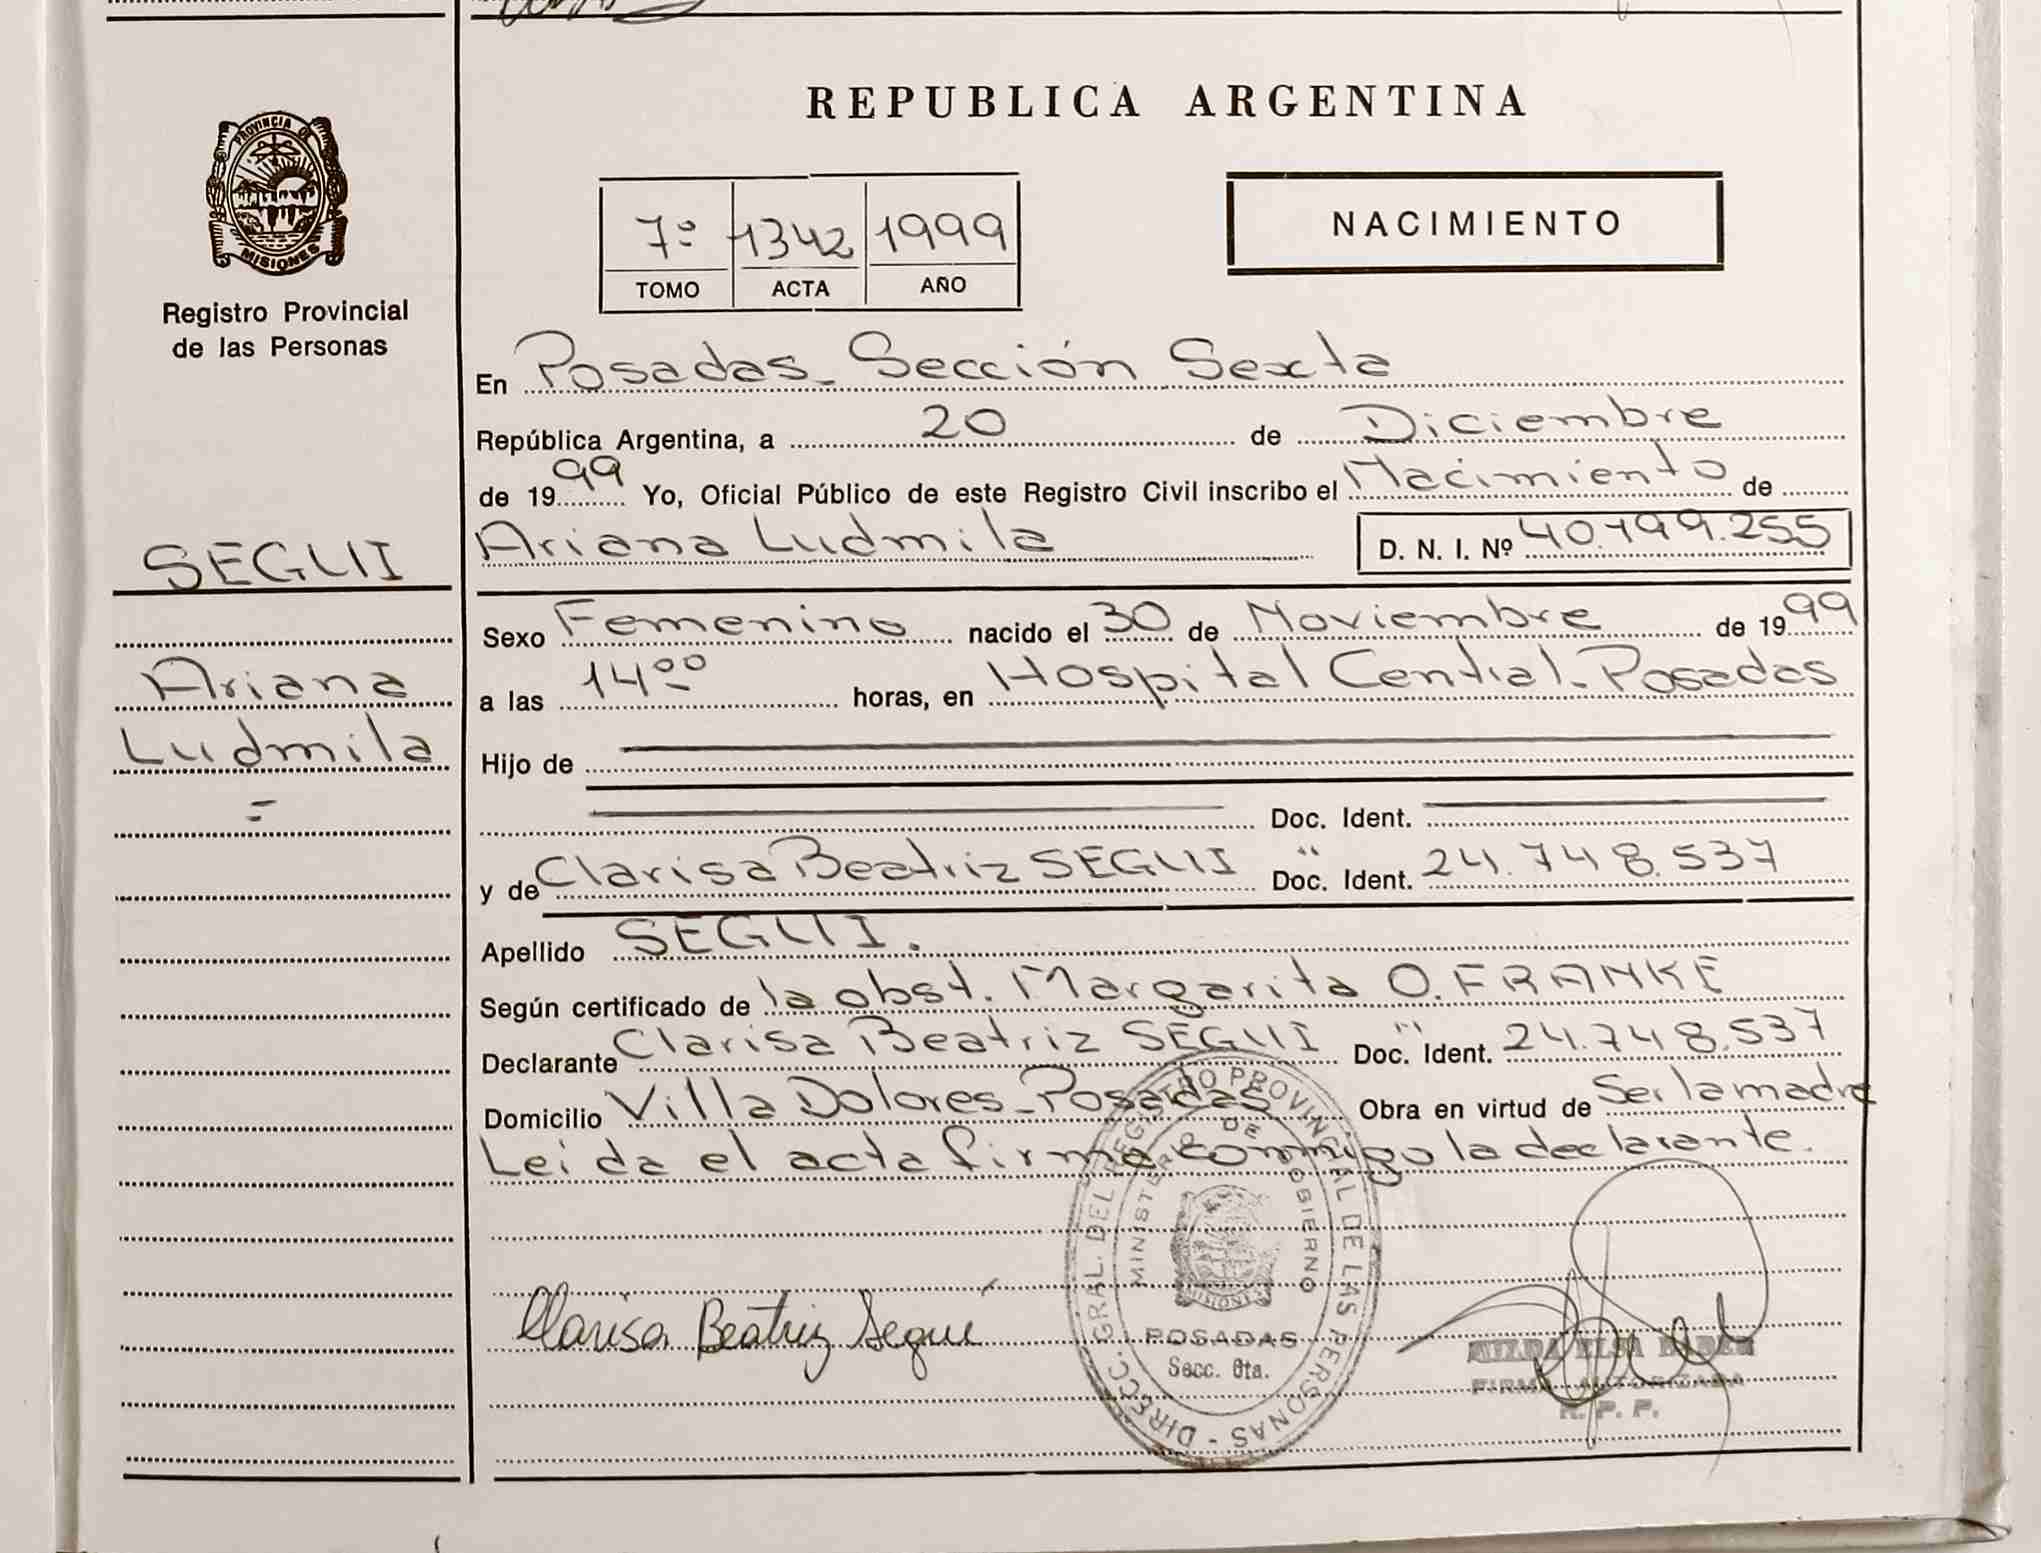 REPUBLICA ARGENTINA
PROVINCIA DE
MISIONES
Registro Provincial
de las Personas
7º 1342 1999
TOMO ACTA AÑO
NACIMIENTO
En Posadas - Sección Sexta
República Argentina, a 20 de Diciembre
de 1999 Yo, Oficial Público de este Registro Civil inscribo el Nacimiento de
SEGUI
Ariana Ludmila D. N. I. Nº 40.199.255
Sexo Femenino nacido el 30 de Noviembre de 1999
Ariana
a las 14ºº horas, en Hospital Central - Posadas
Ludmila
=
Hijo de
Doc. Ident.
y de Clarisa Beatriz SEGUI " Doc. Ident. 24.748.537
Apellido SEGUI.
Según certificado de la obst. Margarita O. FRANKE
Declarante Clarisa Beatriz SEGUI " Doc. Ident. 24.748.537
Domicilio Villa Dolores - Posadas Obra en virtud de Ser la madre
Leida el acta firma conmigo la declarante.
DIRECC. GRAL. DEL REGISTRO PROVINCIAL DE LAS PERSONAS -
MINISTERIO DE GOBIERNO
MISIONES
POSADAS
Secc. 6ta.
Clarisa Beatriz Segui
ELSA
FIRMA AUTORIZADA
R. P. P.